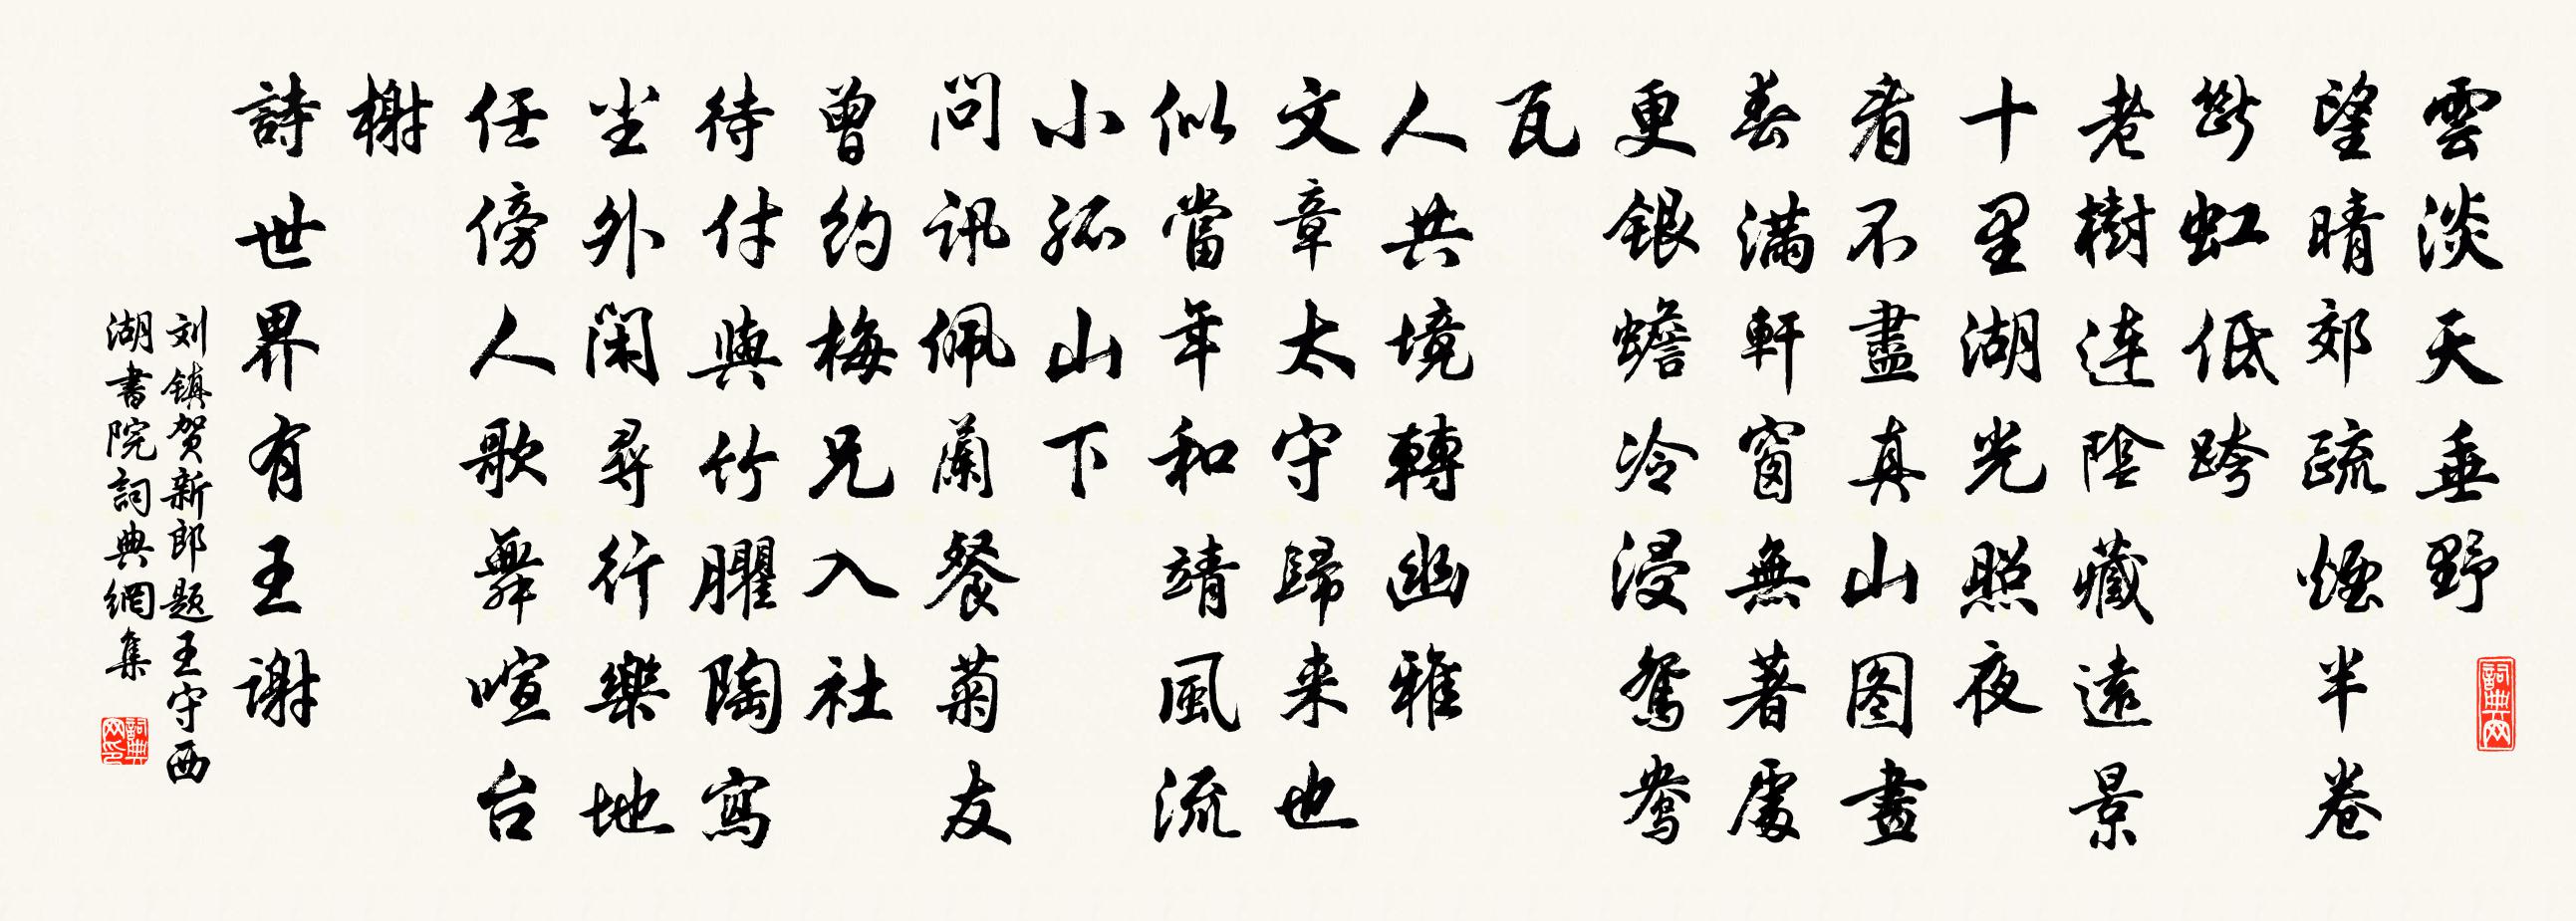 雲淡天垂野
望晴郊疏煙半卷
斷虹低跨
老樹連陰藏遠景
十里湖光照夜
看不盡真山图畫
春滿軒窗無著處
更銀蟾冷浸鴛鴦
瓦
人共境轉幽雅
文章太守歸来也
似當年和靖風流
小孤山下
問訊佩蘭餐菊友
曾約梅兄入社
待付與竹臞陶寫
尘外閑尋行樂地
任傍人歌舞喧台
榭
詩世界有王谢
刘镇贺新郎题王守西
湖書院詞典網集
詞典网
詞典网印